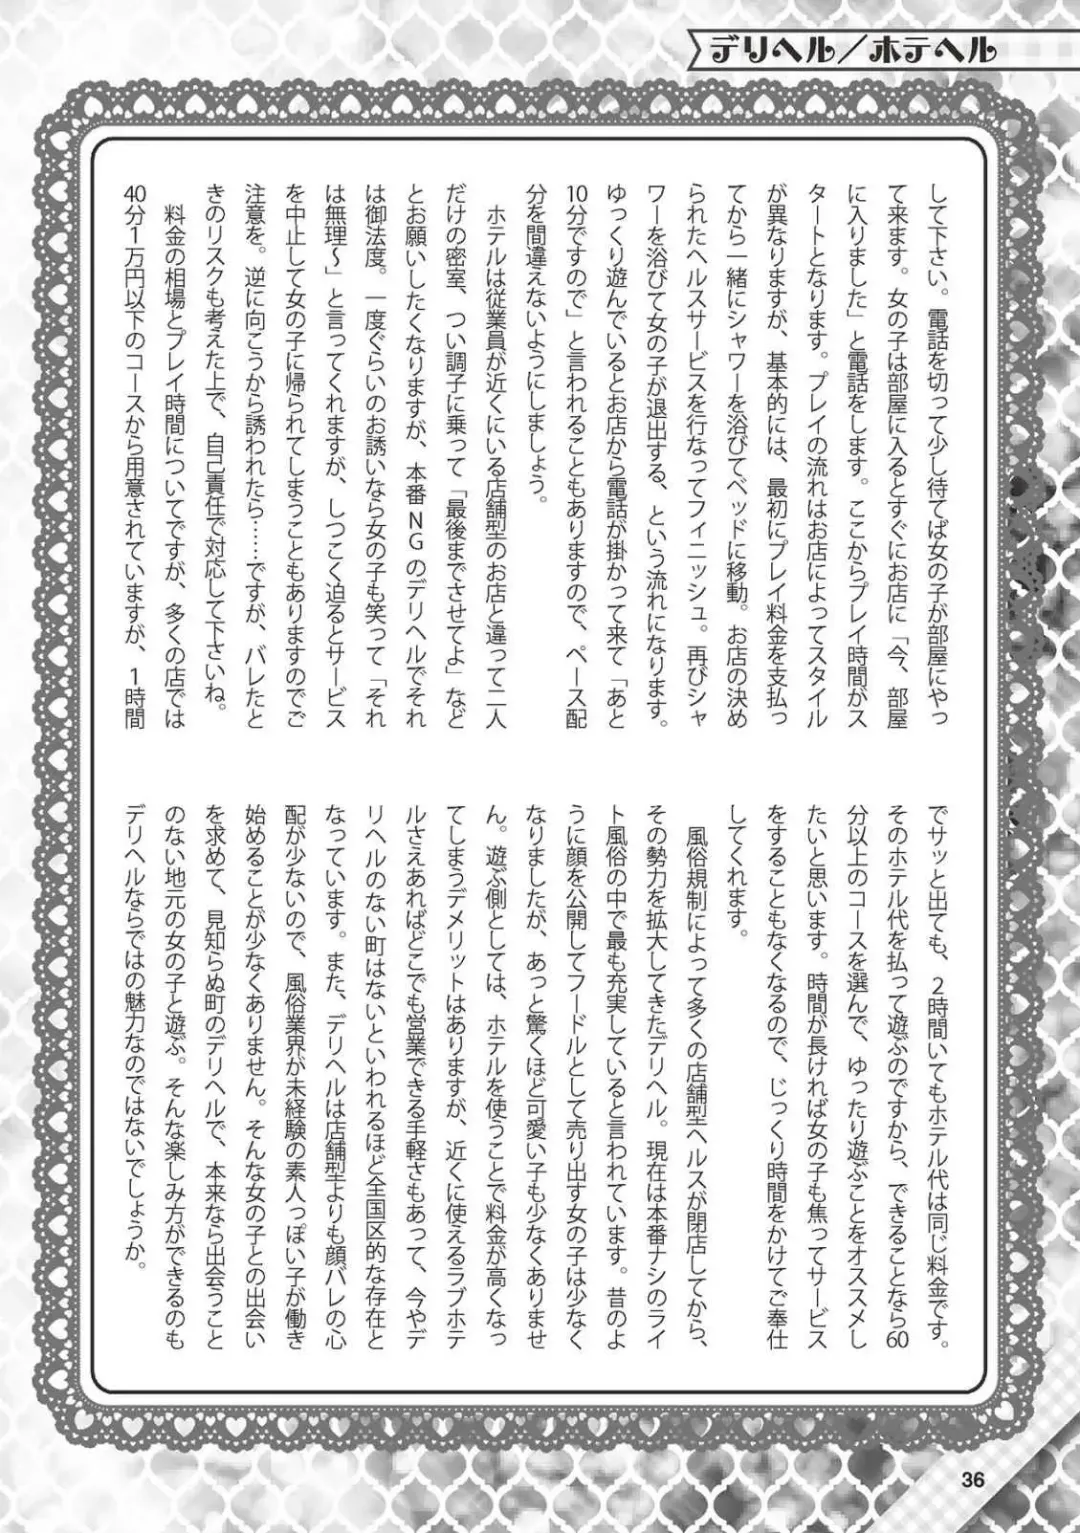 デリヘル／ホテヘル
して下さい。電話を切って少し待てば女の子が部屋にやっ
て来ます。女の子は部屋に入るとすぐにお店に「今、部屋
に入りました」と電話をします。ここからプレイ時間がス
タートとなります。プレイの流れはお店によってスタイル
が異なりますが、基本的には、最初にプレイ料金を支払っ
てから一緒にシャワーを浴びてベッドに移動。お店の決め
られたヘルスサービスを行なってフィニッシュ。再びシャ
ワーを浴びて女の子が退出する、という流れになります。
ゆっくり遊んでいるとお店から電話が掛かって来て「あと
10分ですので」と言われることもありますので、ペース配
分を間違えないようにしましょう。
ホテルは従業員が近くにいる店舗型のお店と違って二人
だけの密室、つい調子に乗って「最後までさせてよ」など
とお願いしたくなりますが、本番NGのデリヘルでそれ
は御法度。一度ぐらいのお誘いなら女の子も笑って「それ
は無理〜」と言ってくれますが、しつこく迫るとサービス
を中止して女の子に帰られてしまうこともありますのでご
注意を。逆に向こうから誘われたら……ですが、バレたと
きのリスクも考えた上で、自己責任で対応して下さいね。
料金の相場とプレイ時間についてですが、多くの店では
40分1万円以下のコースから用意されていますが、1時間
でサッと出ても、2時間いてもホテル代は同じ料金です。
そのホテル代を払って遊ぶのですから、できることなら60
分以上のコースを選んで、ゆったり遊ぶことをオススメし
たいと思います。時間が長ければ女の子も焦ってサービス
をすることもなくなるので、じっくり時間をかけてご奉仕
してくれます。
風俗規制によって多くの店舗型ヘルスが閉店してから、
その勢力を拡大してきたデリヘル。現在は本番ナシのライ
ト風俗の中で最も充実していると言われています。昔のよ
うに顔を公開してフードルとして売り出す女の子は少なく
なりましたが、あっと驚くほど可愛い子も少なくありませ
ん。遊ぶ側としては、ホテルを使うことで料金が高くなっ
てしまうデメリットはありますが、近くに使えるラブホテ
ルさえあればどこでも営業できる手軽さもあって、今やデ
リヘルのない町はないといわれるほど全国区的な存在と
なっています。また、デリヘルは店舗型よりも顔バレの心
配が少ないので、風俗業界が未経験の素人っぽい子が働き
始めることが少なくありません。そんな女の子との出会い
を求めて、見知らぬ町のデリヘルで、本来なら出会うこと
のない地元の女の子と遊ぶ。そんな楽しみ方ができるのも
デリヘルならではの魅力なのではないでしょうか。
36